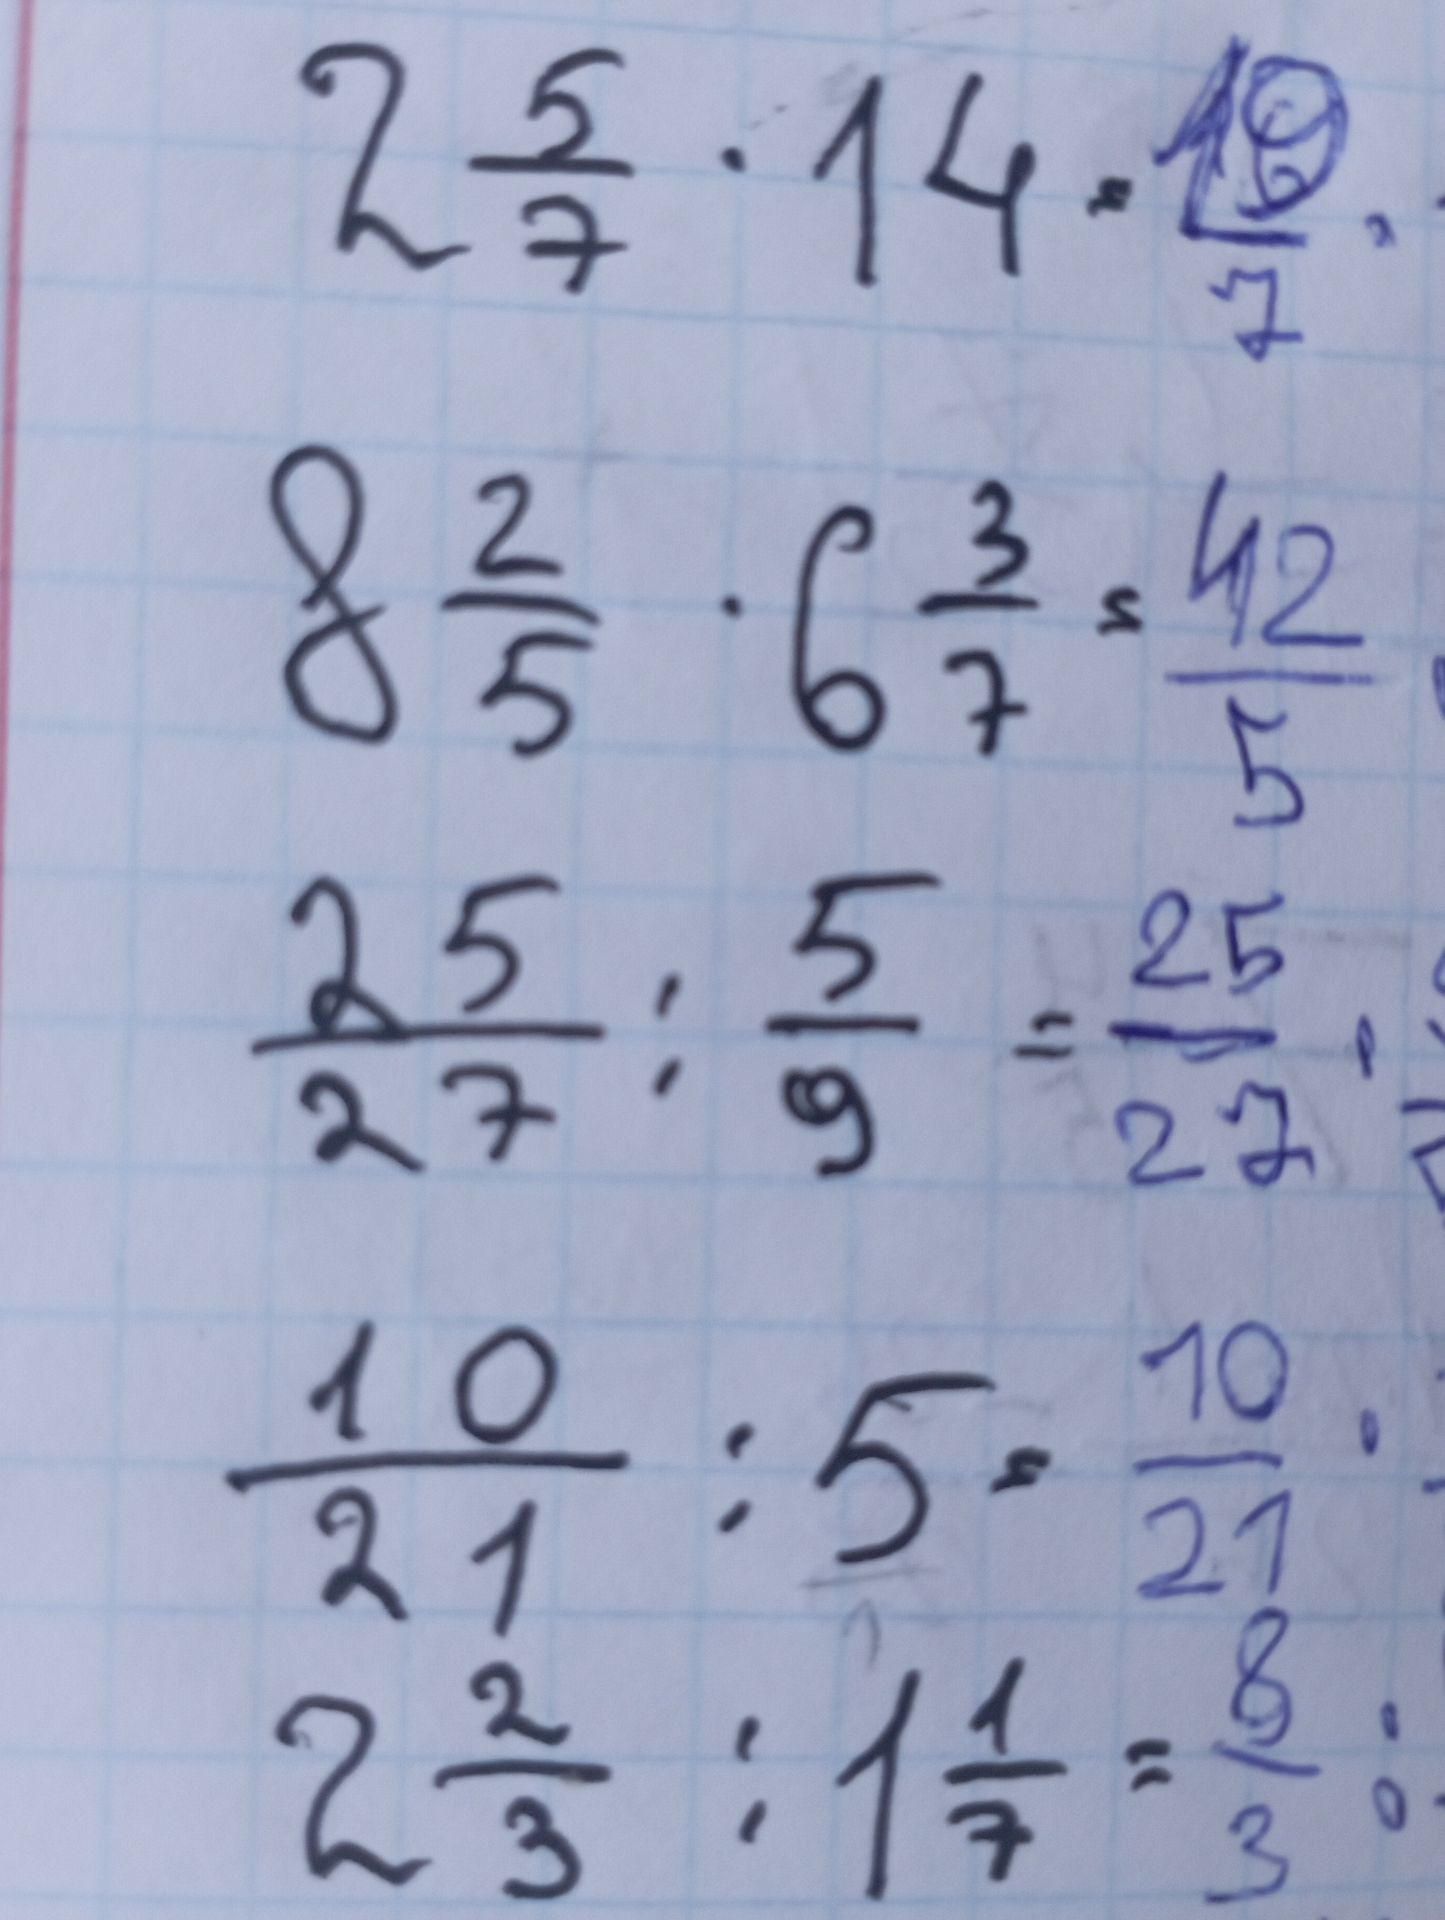 2 5/7 · 14 = 19/7 ·
8 2/5 · 6 3/7 = 42/5
25/27 : 5/9 = 25/27 ·
10/21 : 5 = 10/21 ·
2 2/3 : 1 1/7 = 8/3 :